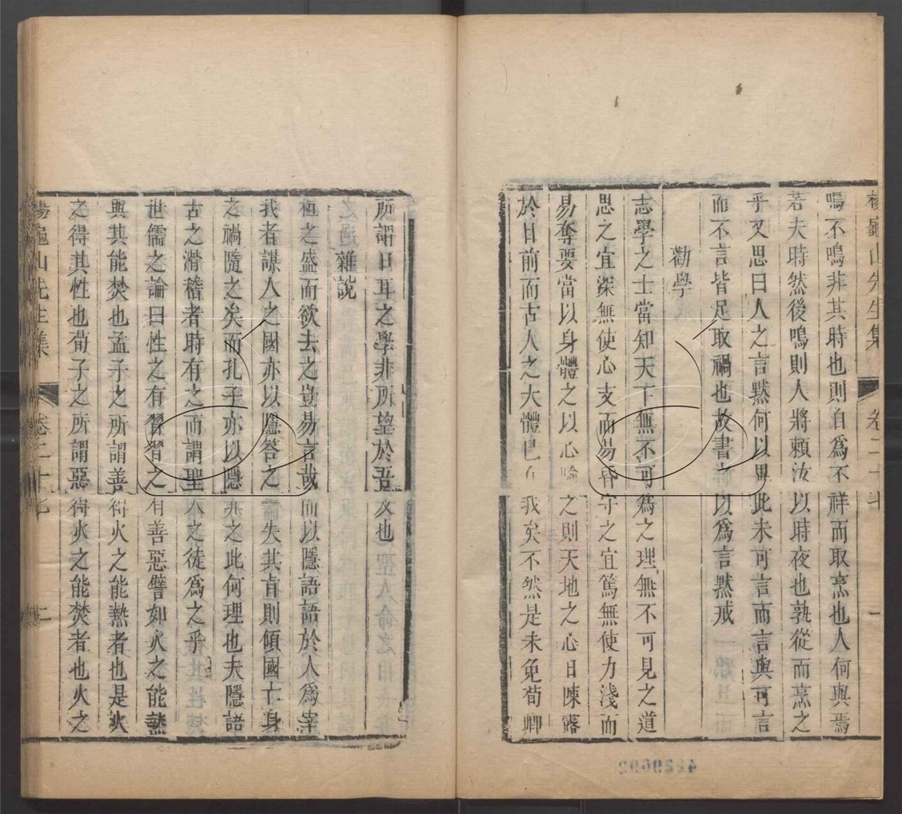 楊龜山先生集 卷二十七 一
鳴不鳴非其時也則自為不祥而取烹也人何與焉
若夫時然後鳴則人將賴汝以時夜也孰從而烹之
乎又思曰人之言默何以異此未可言而言與可言
而不言皆足取禍也故書以為言默戒
勸學
志學之士當知天下無不可為之理無不可見之道
思之宜深無使心支而易昏守之宜篤無使力淺而
易奪要當以身體之以心驗之則天地之心日陳露
於目前而古人之大體已在我矣不然是未免荀卿
所謂口耳之學非所望於吾友也
雜說
極之盛而欲去之豈易言哉而以隱語語於人為宰
我者謀人之國亦以隱答之一失其旨則傾國亡身
之禍隨之矣而孔子亦以隱與之此何理也夫隱語
古之滑稽者時有之而謂聖人之徒為之乎
世儒之論曰性之有習習之有善惡譬如火之能熱
與其能焚也孟子之所謂善得火之能熱者也是火
之得其性也荀子之所謂惡得火之能焚者也火之
楊龜山先生集 卷二十七 二
4229692